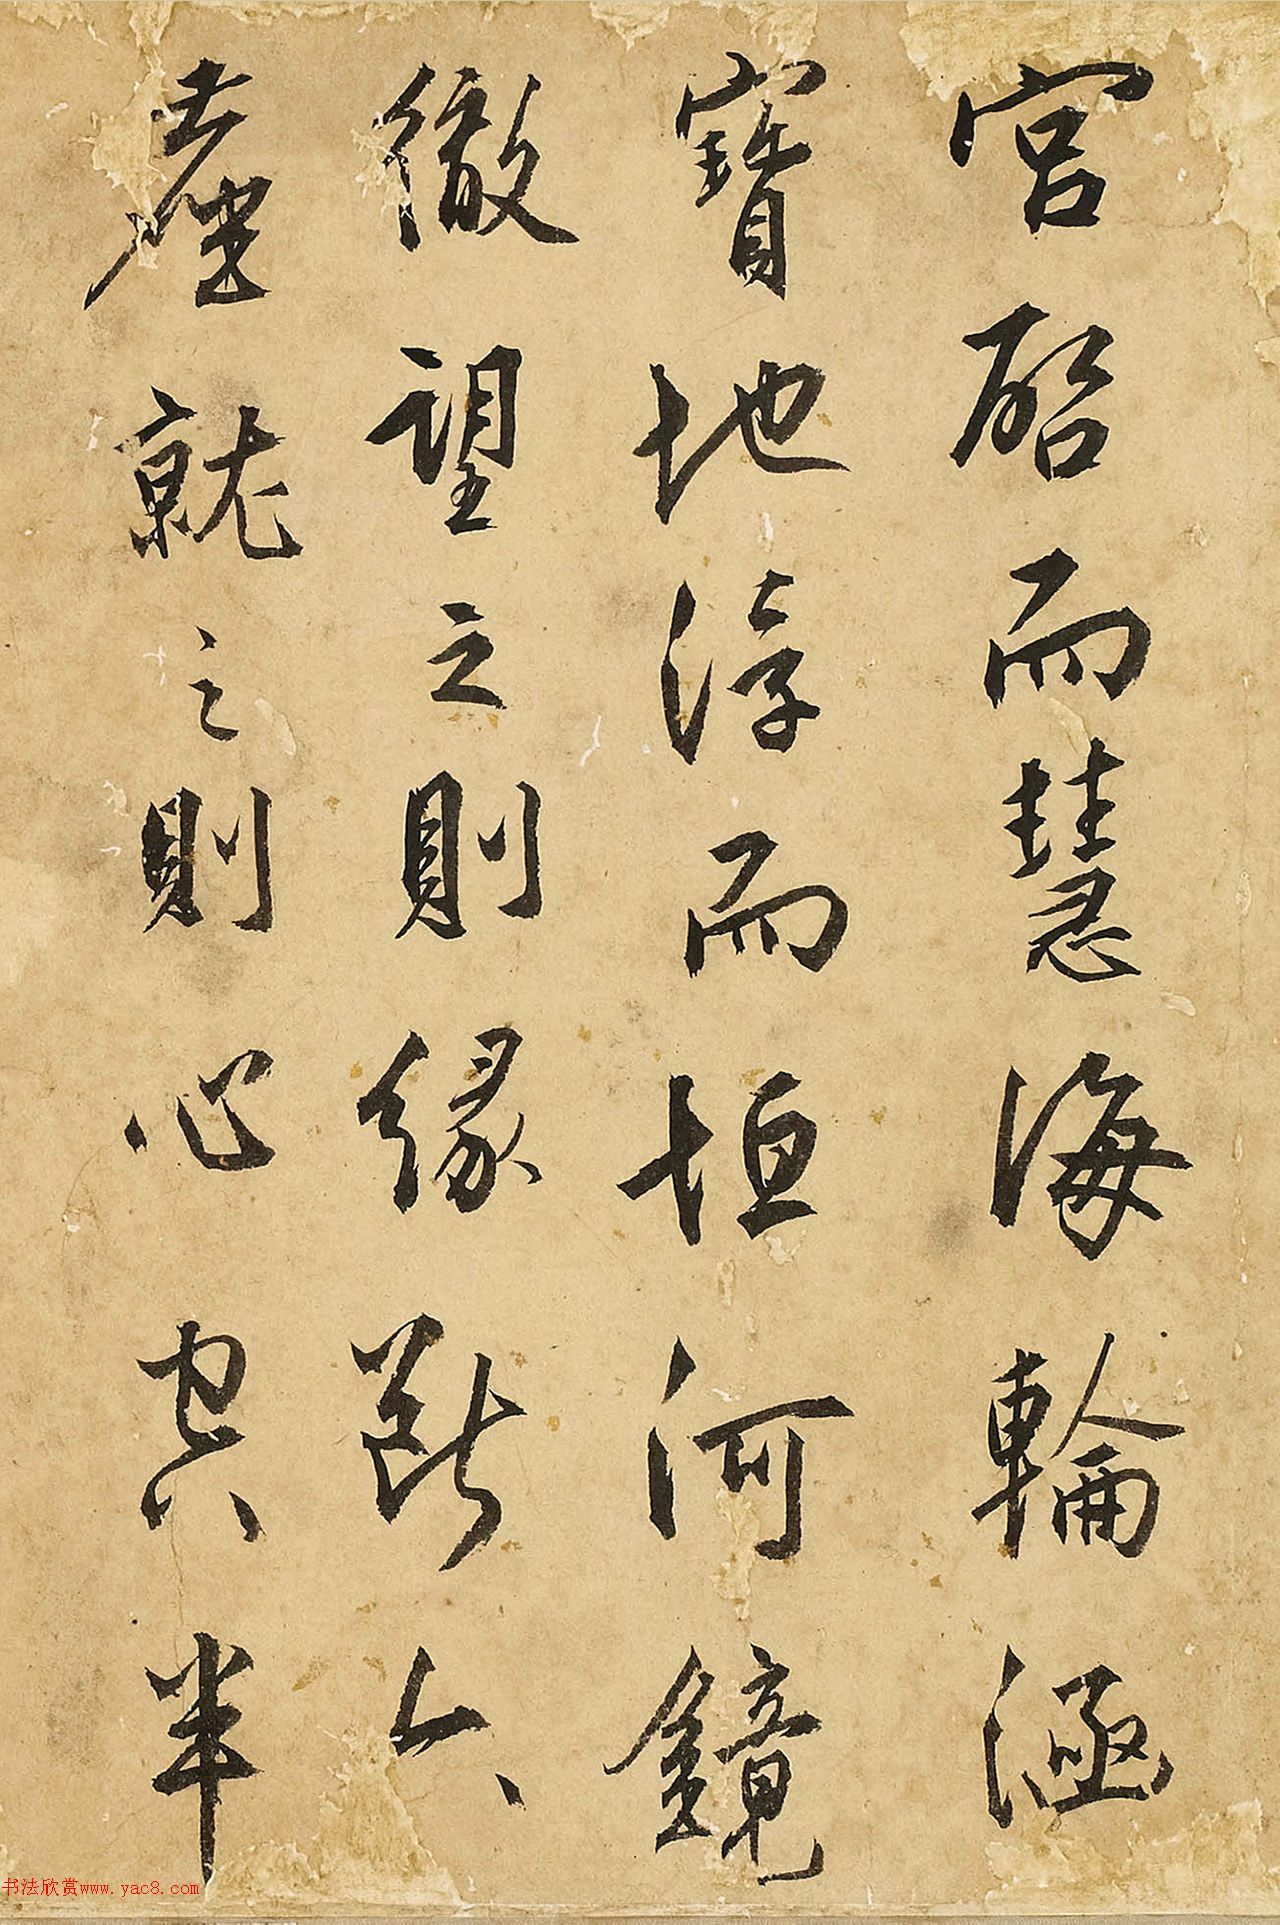 宮啟而慧海輪涵
寶地淳而恒河鏡
徹望之則緣斷六
塵就之則心空半
书法欣赏www.yac8.com